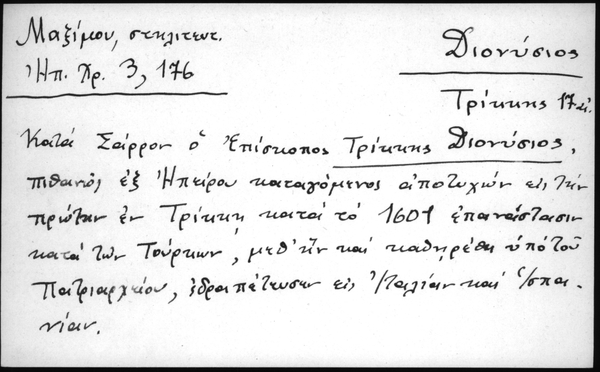 Μαξίμου, στηλιτευτ.
Ἠπ. Χρ. 3, 176
Διονύσιος
Τρίκκης 17 αἰ.
Κατά Σάρρον ὁ Ἐπίσκοπος Τρίκκης Διονύσιος,
πιθανῶς ἐξ Ἠπείρου καταγόμενος ἀποτυχών εἰς τήν
πρώτην ἐν Τρίκκῃ κατά τό 1601 ἐπανάστασιν
κατά τῶν Τούρκων, μεθ' ἥν καί καθῃρέθη ὑπό τοῦ
Πατριαρχείου, ἐδραπέτευσεν εἰς Ἰταλίαν καί Ἱσπα-
νίαν.